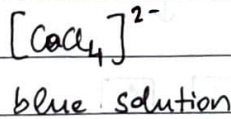 [CoCl₄]²⁻
blue solution